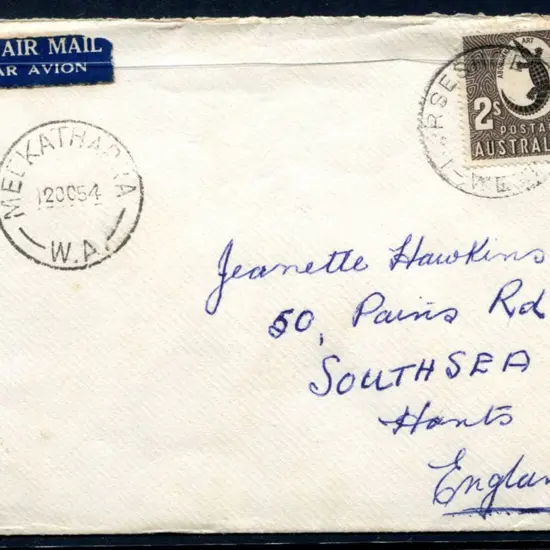 AIR MAIL
AR AVION
MEEKATHARRA
12OC54
W.A.
ABORIGINAL ART
2s
POSTA
AUSTRAL
Jeanette Hawkins
50, Pains Rd
SOUTHSEA
Hants
Englan